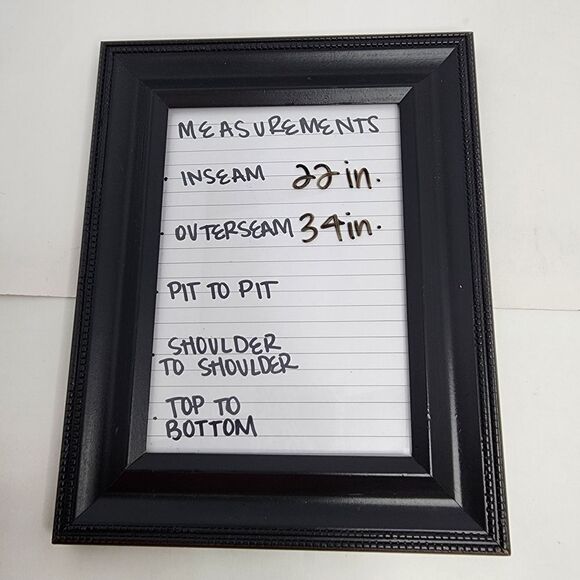 MEASUREMENTS
· INSEAM 22 in.
· OUTERSEAM 34in.
· PIT TO PIT
· SHOULDER
TO SHOULDER
· TOP TO
BOTTOM